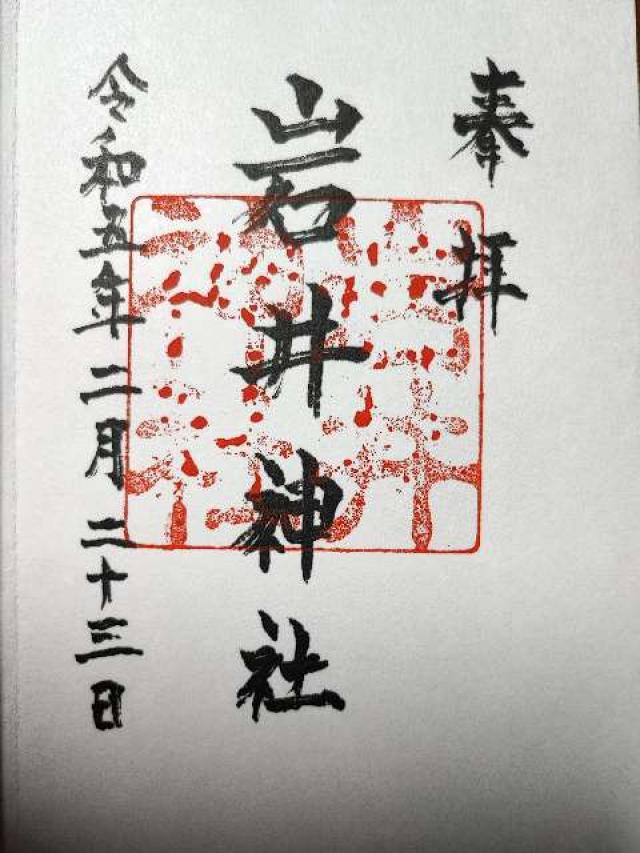 奉拝
岩井神社
令和五年二月二十三日